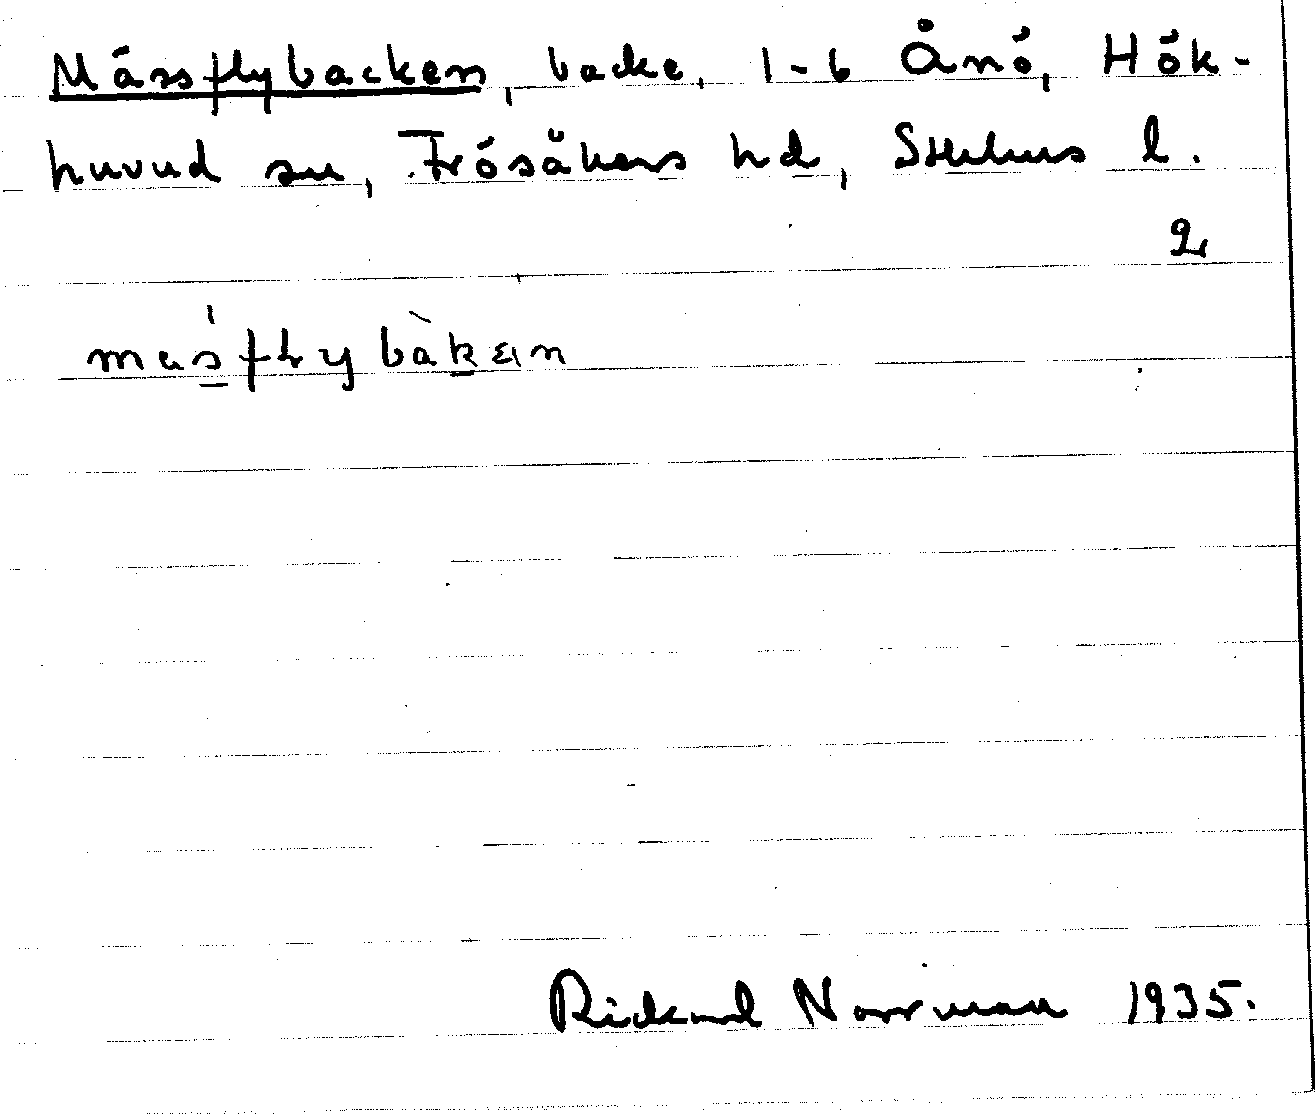 Mässflybacken, backe, 1-6 Ånö, Hök-
huvud sn, Frösåkers hd, Sthlms l.
2
Rickard Norrman 1935.